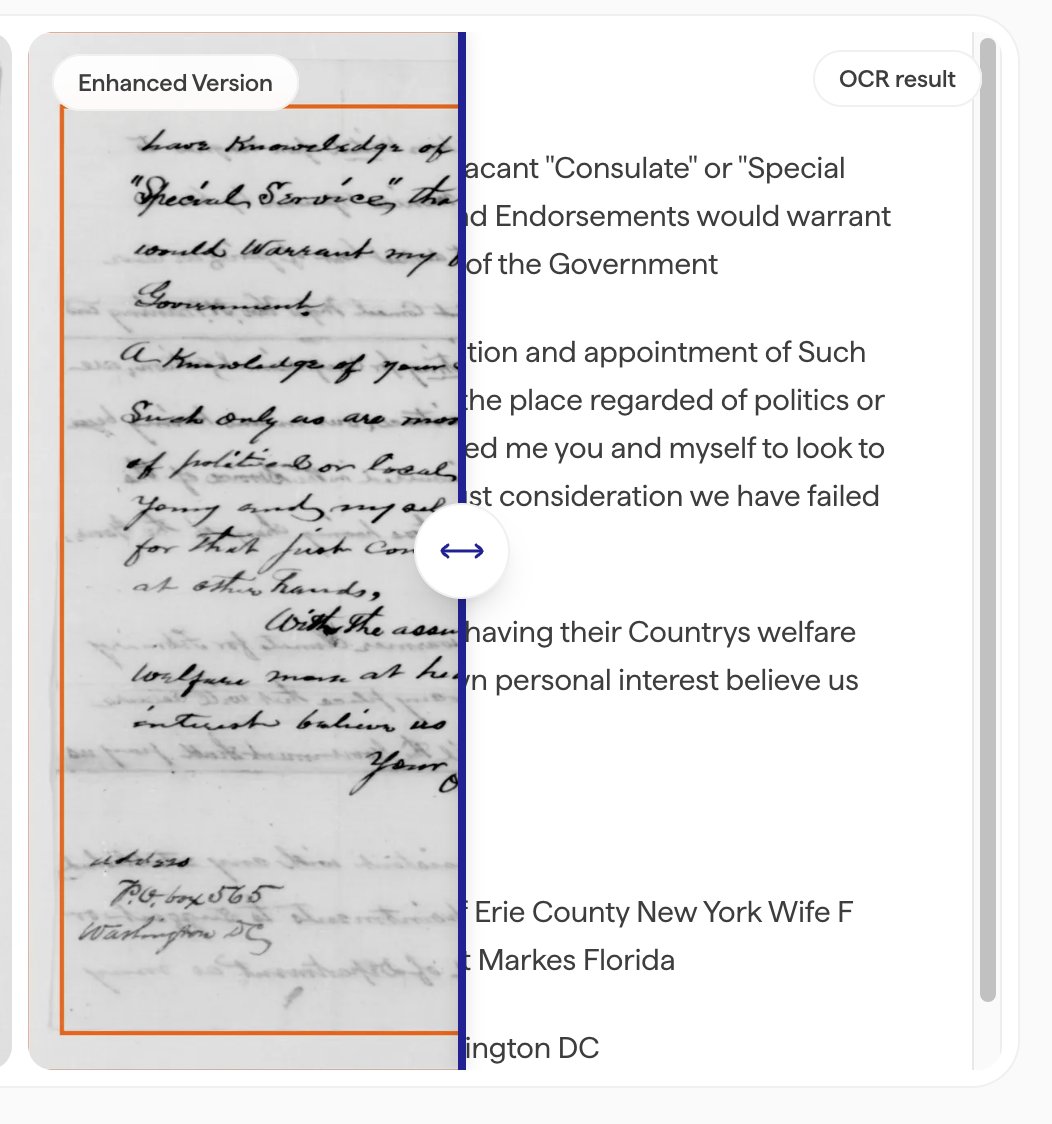 Enhanced Version
have Knowledge of
"Special Service", tha
would Warrant my
Government.
A Knowledge of your
Such only as are mos
of political or local
Young and my sel
for that just con
at other hands,
With the assu
welfare more at hea
interest believe us
Your O
address
P.O. box 565
Washington DC,
OCR result
acant "Consulate" or "Special
nd Endorsements would warrant
of the Government
tion and appointment of Such
the place regarded of politics or
ed me you and myself to look to
ust consideration we have failed
having their Countrys welfare
wn personal interest believe us
f Erie County New York Wife F
t Markes Florida
ington DC